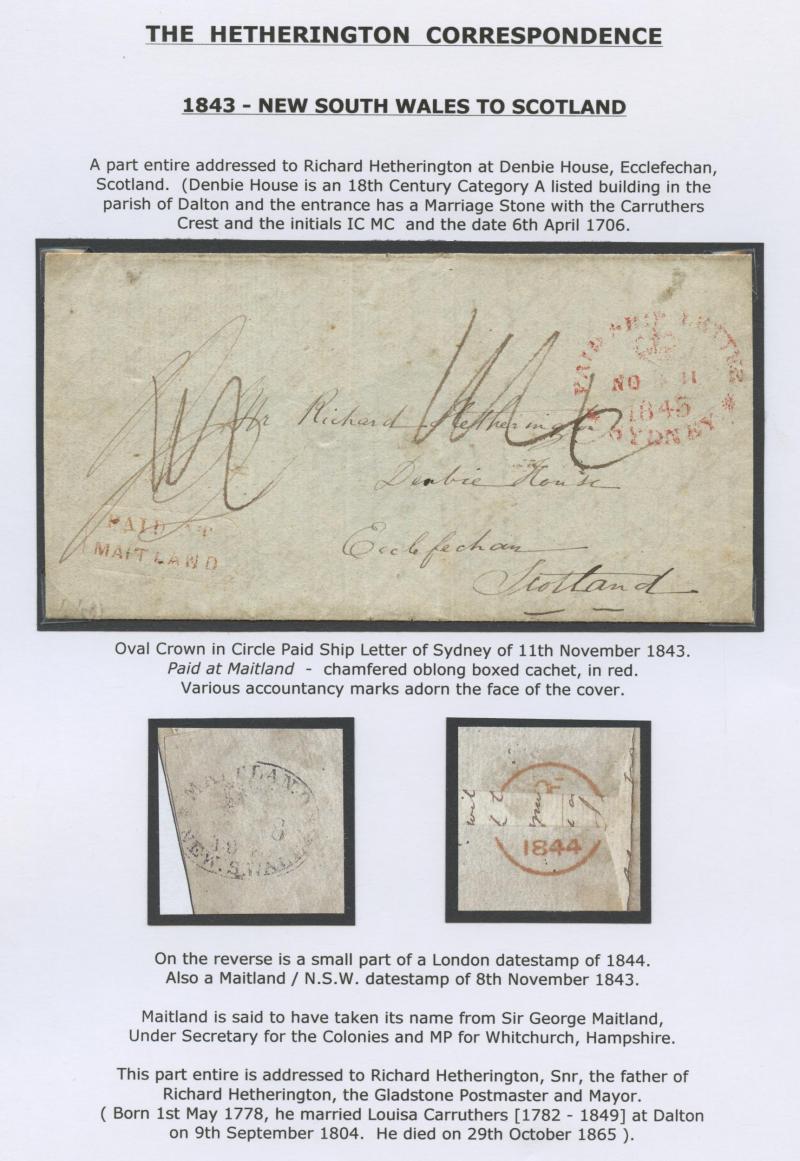 THE HETHERINGTON CORRESPONDENCE
1843 - NEW SOUTH WALES TO SCOTLAND
A part entire addressed to Richard Hetherington at Denbie House, Ecclefechan,
Scotland. (Denbie House is an 18th Century Category A listed building in the
parish of Dalton and the entrance has a Marriage Stone with the Carruthers
Crest and the initials IC MC and the date 6th April 1706.
PAID SHIP LETTER
NO 11
1843
SYDNEY
Mr Richard Hetherington
Denbie House
Ecclefechan
Scotland
PAID AT
MAITLAND
Oval Crown in Circle Paid Ship Letter of Sydney of 11th November 1843.
Paid at Maitland - chamfered oblong boxed cachet, in red.
Various accountancy marks adorn the face of the cover.
MAITLAND
8
NEW.S.WALES
1844
On the reverse is a small part of a London datestamp of 1844.
Also a Maitland / N.S.W. datestamp of 8th November 1843.
Maitland is said to have taken its name from Sir George Maitland,
Under Secretary for the Colonies and MP for Whitchurch, Hampshire.
This part entire is addressed to Richard Hetherington, Snr, the father of
Richard Hetherington, the Gladstone Postmaster and Mayor.
( Born 1st May 1778, he married Louisa Carruthers [1782 - 1849] at Dalton
on 9th September 1804. He died on 29th October 1865 ).